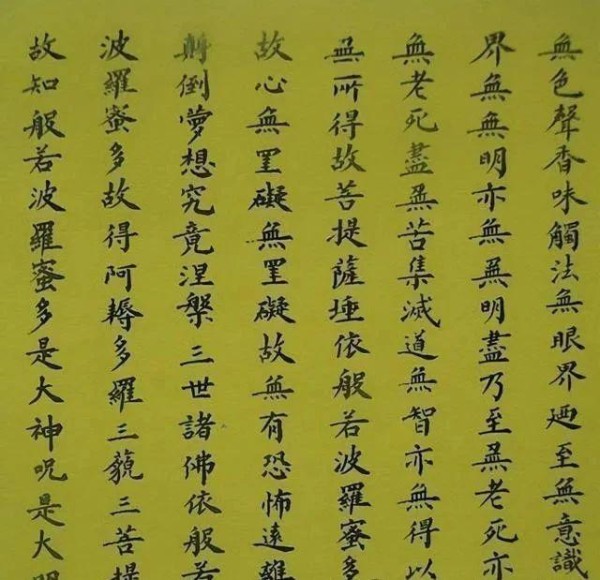 無色聲香味觸法無眼界廼至無意識
界無無明亦無無明盡乃至無老死亦
無老死盡無苦集滅道無智亦無得以
無所得故菩提薩埵依般若波羅蜜多
故心無罣礙無罣礙故無有恐怖遠離
顛倒夢想究竟涅槃三世諸佛依般若
波羅蜜多故得阿耨多羅三藐三菩提
故知般若波羅蜜多是大神呪是大明